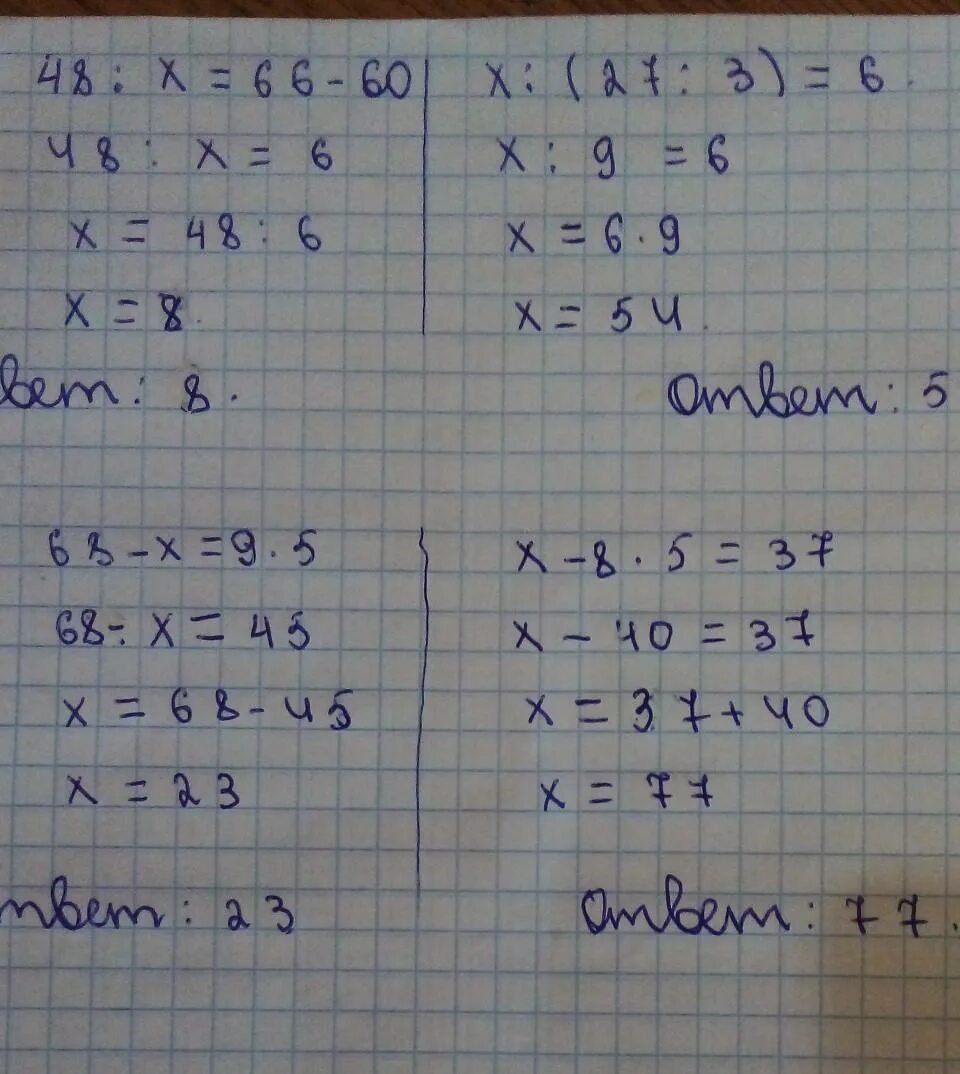 48 : x = 66 - 60
48 : x = 6
x = 48 : 6
x = 8.
вет : 8.
x : (27 : 3) = 6.
x : 9 = 6
x = 6 · 9
x = 54.
Ответ : 5
68 - x = 9 · 5
68 - x = 45
x = 68 - 45
x = 23
твет : 23
x - 8 · 5 = 37
x - 40 = 37
x = 37 + 40
x = 77
Ответ : 77.